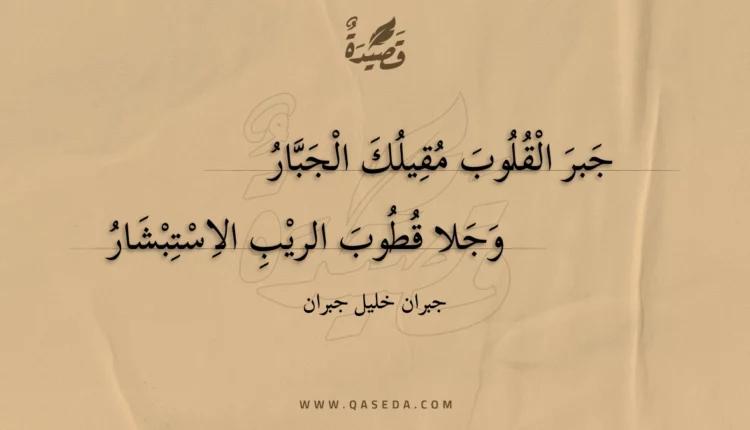 قَصِيْدَةٌ
جَبرَ الْقُلُوبَ مُقِيلُكَ الْجَبَّارُ
وَجَلا قُطُوبَ الريْبِ الاِسْتِبْشَارُ
جبران خليل جبران
WWW.QASEDA.COM